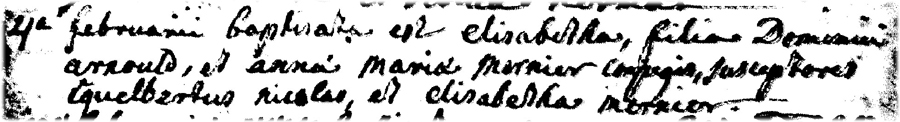 4a februarii baptisata est elisabetha, filia Dominici
arnould, et anna maria mernier conjugis, susceptores
Equelbertus nicolas, et elisabetha mernier.